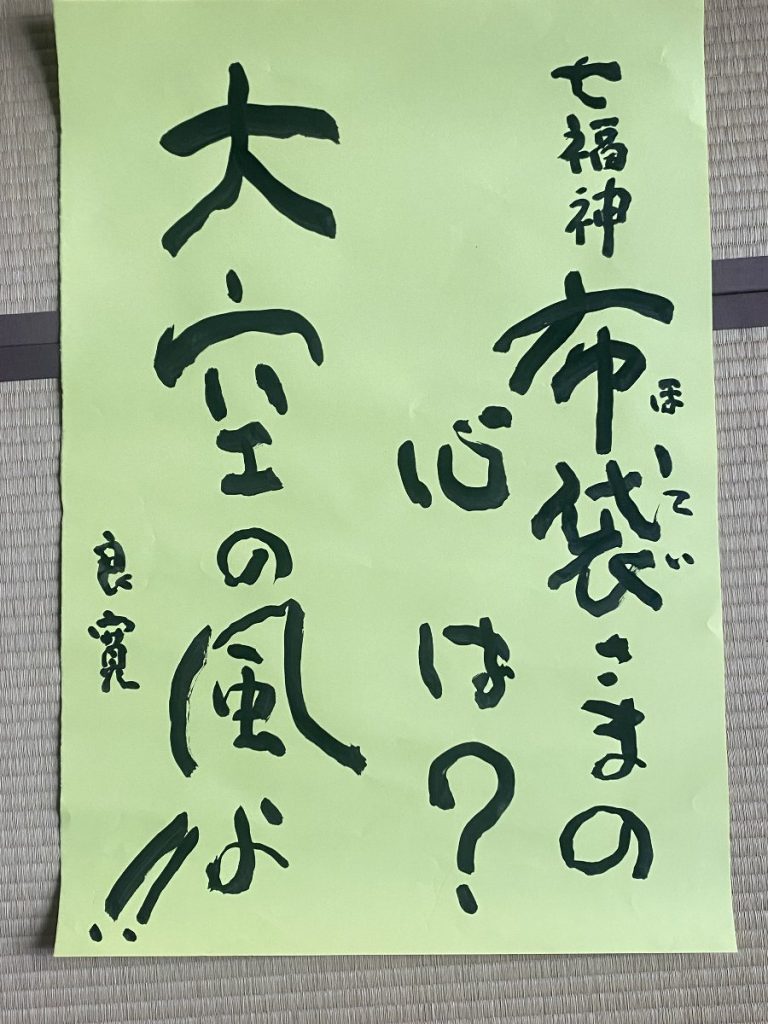 七福神 布袋さまの
ほてい
心は?
大空の風よ!!
良寛